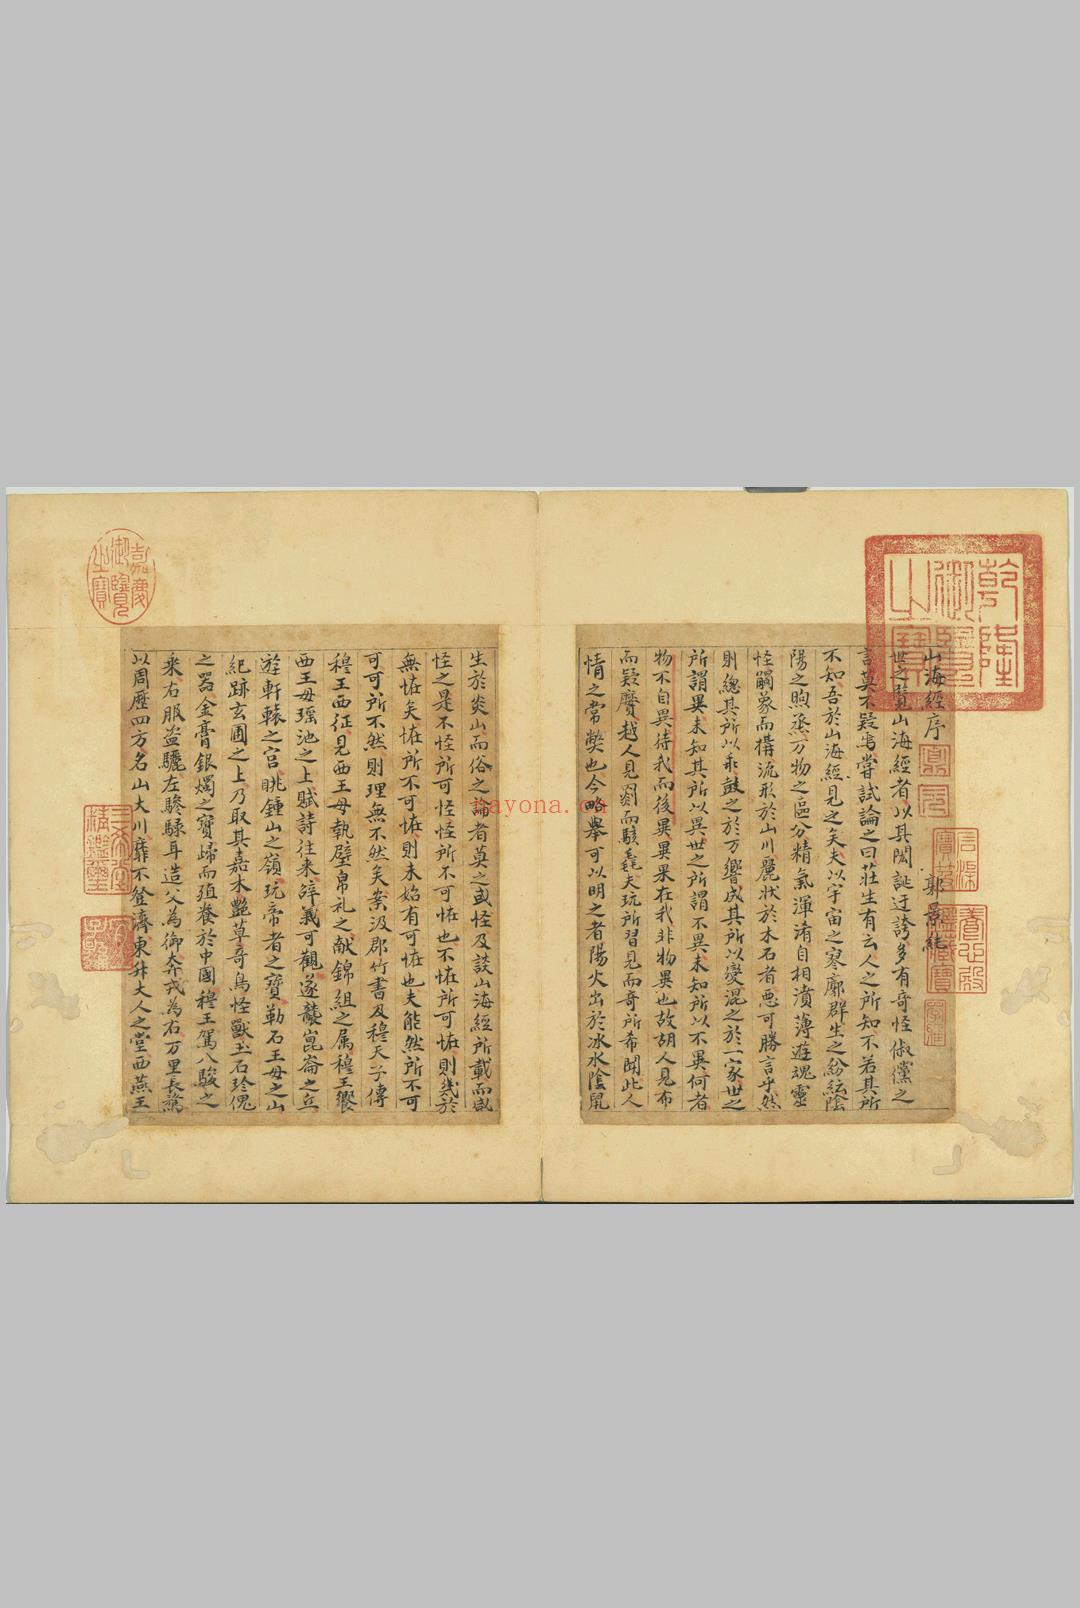 山海經序
郭景純
世之覽山海經者以其閎誕迂誇多有奇怪俶儻之
言莫不疑焉嘗試論之曰莊生有云人之所知不若其所
不知吾於山海經見之矣夫以宇宙之寥廓群生之紛紜陰
陽之煦蒸万物之區分精氣渾淆自相濆薄遊魂靈
怪觸象而構流形於山川麗狀於木石者惡可勝言乎然
則總其所以乖鼓之於万響成其所以變混之於一家世之
所謂異未知其所以異世之所謂不異未知所以不異何者
物不自異待我而後異異果在我非物異也故胡人見布
而疑黂越人見罽而駭毳夫玩所習見而奇所希聞此人
情之常獘也今略舉可以明之者陽火出於冰水陰鼠
生於炎山而俗之論者莫之或怪及談山海經所載而咸
怪之是不怪所可怪怪所不可怪也不怪所可怪則幾於
無怪矣怪所不可怪則未始有可怪也夫能然所不可
可所不然則理無不然矣案汲郡竹書及穆天子傳
穆王西征見西王母執璧帛礼之献錦組之属穆王饗
西王母瑶池之上賦詩往来辝義可觀遂襲崑崙之丘
遊軒轅之宫眺鍾山之嶺玩帝者之寶勒石王母之山
紀跡玄圃之上乃取其嘉木艷草奇鳥怪獸玉石珍瑰
之器金膏銀燭之寶歸而殖養於中國穆王駕八駿之
乘右服盗驪左驂騄耳造父為御奔戎為右万里長騖
以周歷四方名山大川靡不登濟東升大人之堂西燕王
乾隆御覽之寶
嘉慶御覽之寶
三希堂精鑑璽
宜子孫
養心殿鑑藏寶
nayona.cn